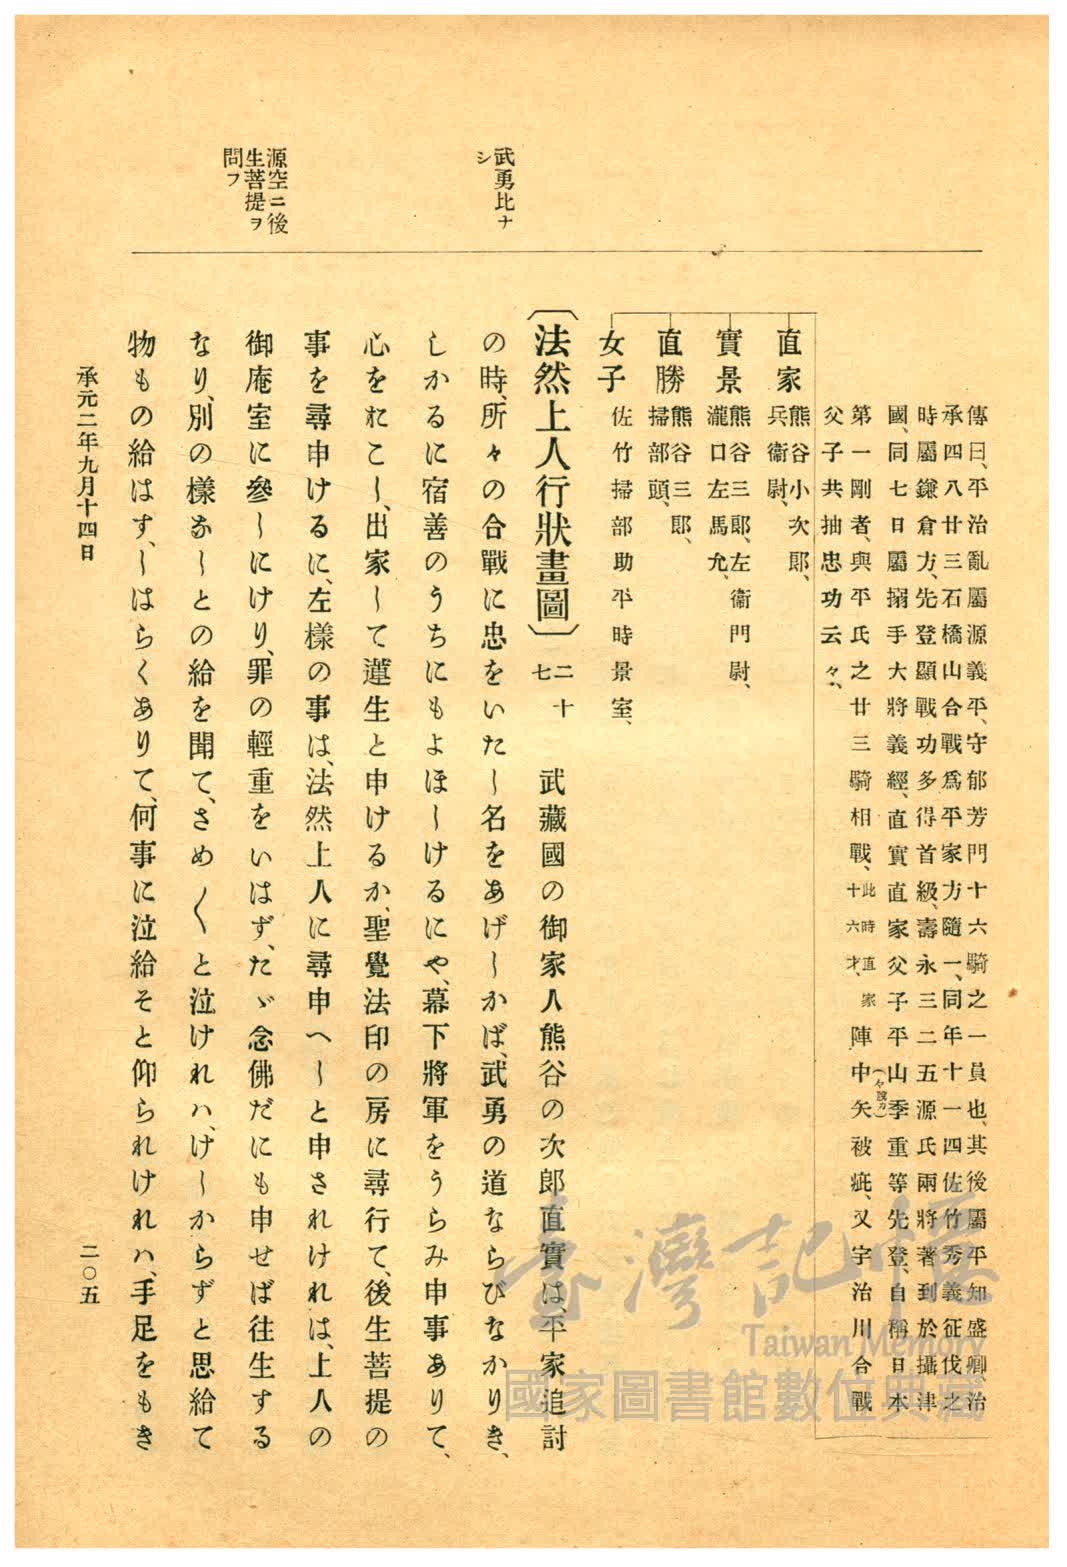 武勇比ナ
シ
源空ニ後
生菩提ヲ
問フ
傳曰、平治亂屬源義平、守郁芳門十六騎之一員也、其後屬平知盛卿、治
承四八廿三石橋山合戰爲平家方隨一、同年十一四佐竹秀義征伐之
時屬鎌倉方、先登顯戰功多得首級、壽永三二五源氏兩將著到於攝津
國、同七日屬搦手大將義經、直實直家父子平山季重等先登、自稱日本
第一剛者、與平氏之廿三騎相戰、此時直家十六才、陣中矢被疵、又宇治川合戰
父子共抽忠功云々、
直家 熊谷小次郎、兵衞尉、
實景 熊谷三郎、左衞門尉、瀧口左馬允、
直勝 熊谷三郎、掃部頭、
女子 佐竹掃部助平時景室、
〔法然上人行狀畫圖〕 二十七 武藏國の御家人熊谷の次郎直實は、平家追討
の時、所々の合戰に忠をいたし名をあげしかば、武勇の道ならびなかりき、
しかるに宿善のうちにもよほしけるにや、幕下將軍をうらみ申事ありて、
心をおこし、出家して蓮生と申けるか、聖覺法印の房に尋行て、後生菩提の
事を尋申けるに、左樣の事は、法然上人に尋申へしと申されけれは、上人の
御庵室に參しにけり、罪の輕重をいはず、たゞ念佛だにも申せば往生する
なり、別の樣なしとの給を聞て、さめ〱と泣けれハ、けしからずと思給て
物もの給はす、しはらくありて、何事に泣給そと仰られけれハ、手足をもき
承元二年九月十四日
二〇五
臺灣記憶
Taiwan Memory
國家圖書館數位典藏